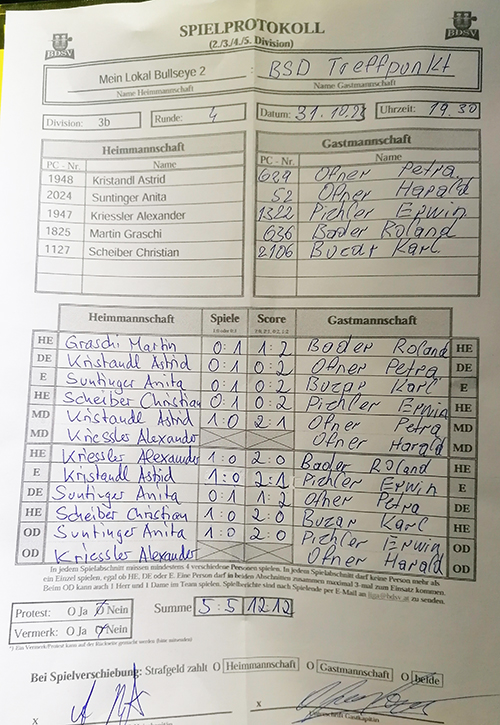 BDSV
SPIELPROTOKOLL
(2./3./4./5. Division)
BDSV
Mein Lokal Bullseye 2 : BSD Treffpunkt
Name Heimmannschaft Name Gastmannschaft
Division: 3b Runde: 4 Datum: 31.10.23 Uhrzeit: 19.30
Heimmannschaft Gastmannschaft
PC - Nr. Name PC - Nr. Name
1948 Kristandl Astrid 629 Ofner Petra
2024 Suntinger Anita 52 Ofner Harald
1947 Kriessler Alexander 1322 Pichler Erwin
1825 Martin Graschi 636 Bader Roland
1127 Scheiber Christian 2106 Buzar Karl
Heimmannschaft Spiele Score Gastmannschaft
1:0 oder 0:1 2:0, 2:1, 0:2, 1:2
HE Graschi Martin 0:1 1:2 Bader Roland HE
DE Kristandl Astrid 0:1 0:2 Ofner Petra DE
E Suntinger Anita 0:1 0:2 Buzar Karl E
HE Scheiber Christian 0:1 0:2 Pichler Erwin HE
MD Kristandl Astrid 1:0 2:1 Ofner Petra MD
MD Kriessler Alexander Ofner Harald MD
HE Kriessler Alexander 1:0 2:0 Bader Roland HE
E Kristandl Astrid 1:0 2:1 Pichler Erwin E
DE Suntinger Anita 0:1 1:2 Ofner Petra DE
HE Scheiber Christian 1:0 2:0 Buzar Karl HE
OD Suntinger Anita 1:0 2:0 Pichler Erwin OD
OD Kriessler Alexander Ofner Harald OD
In jedem Spielabschnitt müssen mindestens 4 verschiedene Personen spielen. In jedem Spielabschnitt darf keine Person mehr als
ein Einzel spielen, egal ob HE, DE oder E. Eine Person darf in beiden Abschnitten zusammen maximal 3-mal zum Einsatz kommen.
Beim OD kann auch 1 Herr und 1 Dame im Team spielen. Spielberichte sind nach Spielende per E-Mail an liga@bdsv.at zu senden.
Protest: O Ja O Nein Summe 5:5 12:12
Vermerk: O Ja O Nein
*) Ein Vermerk/Protest kann auf der Rückseite gemacht werden (bitte
Bei Spielverschiebung: Strafgeld zahlt O Heimmannschaft O Gastmannschaft O beide
x x
Gastkapitän